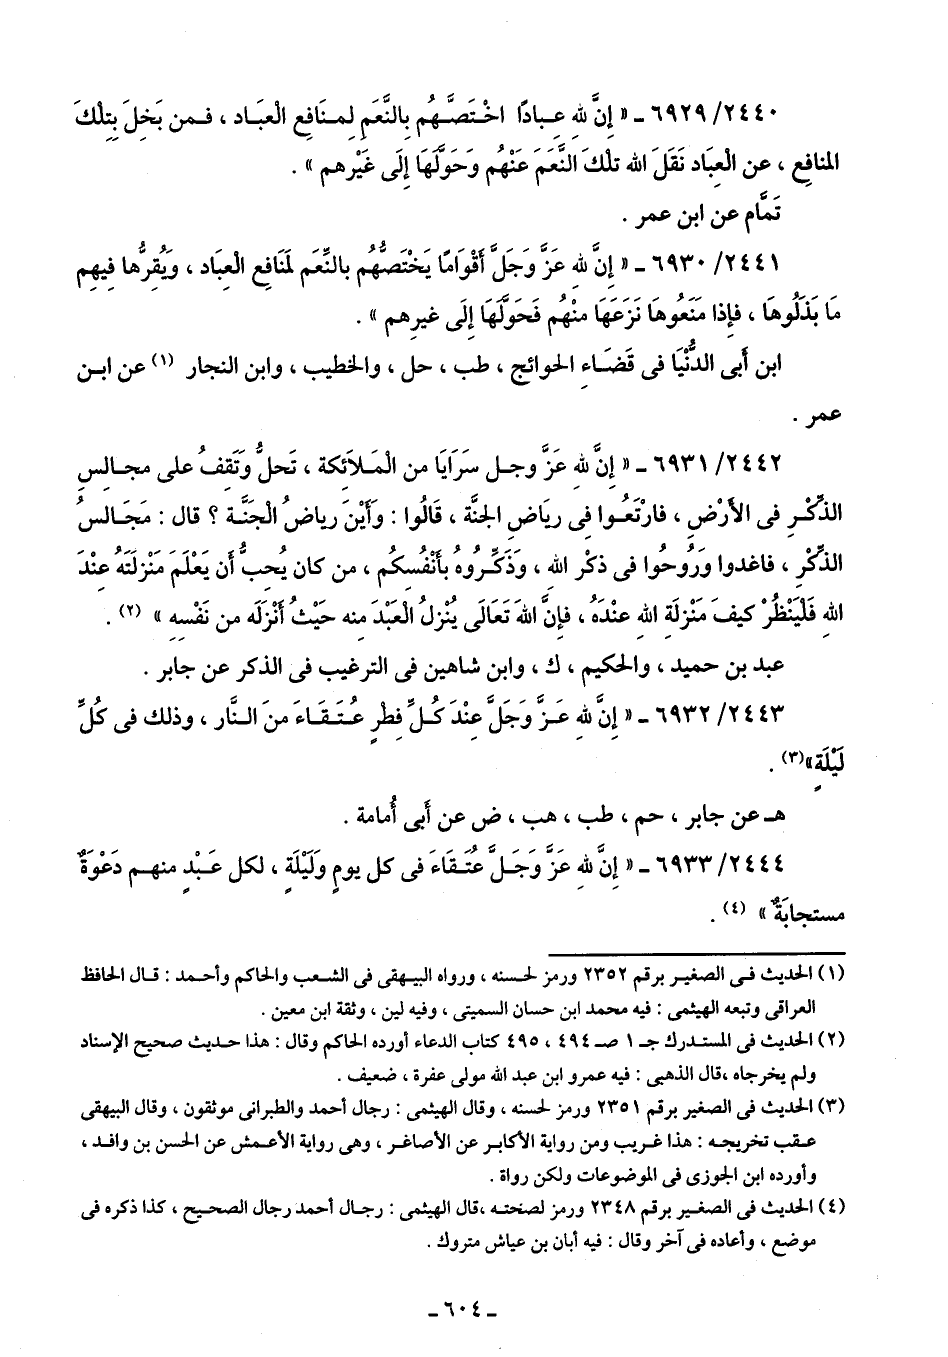 ٢٤٤٠/ ٦٩٢٩ ـ « إِنَّ لله عِـبـادًا اخْـتَصَّـهُم بِالنَّعَمِ لِمـنَافِع الْعبَـاد ، فـمن بَخِلَ بِتلْكَ
المنافِع ، عن الْعِبَاد نَقَلَ الله تلْكَ النَّعَمَ عَنْهُم وَحَوَّلَهَا إِلَى غَيْرِهم » .
تَمَّام عن ابن عمر .
٢٤٤١/ ٦٩٣٠ ـ « إِنَّ لله عَزَّ وَجَلَّ أَقْوَامًا يَخْتَصُّهُم بالنِّعَم لمَنَافع العِبَاد ، ويَُقِرُّها فيهِم
مَا بَذَلُوهَا ، فإِذا مَنَعُوهَا نَزَعَهَا منْهُم فَحَوَّلَهَا إِلَى غيرِهم » .
ابن أَبى الدُّنْيَا فى قَضَـاءِ الحوائج ، طب ، حل ، والخطيب ، وابن النجار (١) عن ابـن
عمر .
٢٤٤٢/ ٦٩٣١ ـ « إِنَّ لله عَزَّ وجـل سَرَايَا من الْمَلاَئكة ، تَحلُّ وَتَقفُ على مجـالِسِ
الذِّكْـرِ فى الأَرْضِ ، فارْتَعُـوا فى رياضِ الجنَّة ، قَالُوا : وأَيْنَ رياضُ الْجنَّـة ؟ قال : مَجَـالسُ
الذِّكْرِ ، فاغدوا وَرُوحُوا فى ذكْر الله ، وَذَكِّـرُوهُ بأَنْفُسكُم ، من كان يُحبُّ أَن يَعْلَمَ مَنْزِلَتَهُ عنْدَ
الله فَلْيَنْظُرْ كيفَ مَنْزلَة الله عنْدَهُ ، فإِنَّ اللهَ تَعَالَى يُنْزلُ الْعَبْدَ منه حَيْثُ أَنْزلَه من نَفْسِه » (٢) .
عبد بن حميد ، والحكيم ، ك ، وابن شاهين فى الترغيب فى الذكر عن جابر .
٢٤٤٣/ ٦٩٣٢ ـ « إِنَّ لله عَـزَّ وَجَلَّ عنْدَ كُـلِّ فِطرٍ عُـتَـقَـاءَ منَ الـنَّار ، وذلك فى كُلِّ
لَيْلَةٍ»(٣) .
هـ عن جابر ، حم ، طب ، هب ، ض عن أَبى أُمامة .
٢٤٤٤/ ٦٩٣٣ ـ « إِنَّ لله عَزَّ وَجَـلَّ عُتَـقَاءَ فى كل يومٍ وَلَيْلَةٍ ، لكل عَـبْدٍ منهـم دَعْوَةٌ
مستجابَةٌ » (٤) .
(١) الحديث فـى الصغيـر برقم ٢٣٥٢ ورمز لحسنه ، ورواه البيـهقى فى الشعب والحاكم وأحـمد : قـال الحافظ
العراقى وتبعه الهيثمى : فيه محمد ابن حسان السميتى ، وفيه لين ، وثقة ابن معين .
(٢) الحديث فى المستدرك جـ ١ صـ ٤٩٤ ، ٤٩٥ كتاب الدعاء أورده الحاكم وقال : هذا حـديث صحيح الإسناد
ولم يخرجاه ،قال الذهبى : فيه عمرو ابن عبد الله مولى عفرة ، ضعيف .
(٣) الحديث فى الصغير برقم ٢٣٥١ ورمز لحسنه ، وقال الهيثمى : رجال أحمد والطبرانى موثقون ، وقال البيهقى
عـقب تخريجـه : هذا غـريب ومن رواية الأكابر عن الأصاغـر ، وهى رواية الأعـمش عن الحسن بن وافـد ،
وأورده ابن الجوزى فى الموضوعات ولكن رواة .
(٤) الحديث فى الصغـير برقم ٢٣٤٨ ورمز لصحتـه ،قال الهيثمى : رجـال أحمد رجال الصحيح ، كذا ذكره فى
موضع ، وأعاده فى آخر وقال : فيه أبان بن عياش متروك .
ـ ٦٠٤ ـ